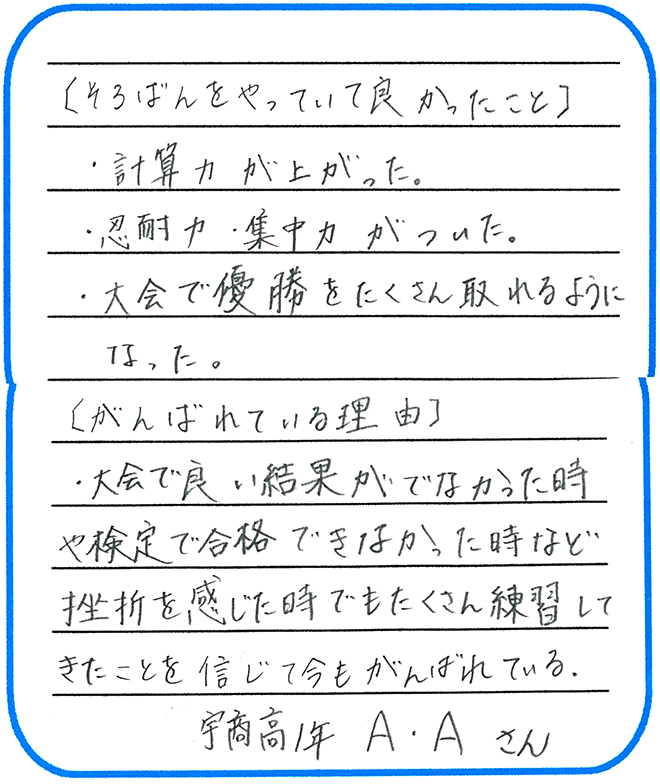 〔そろばんをやっていて良かったこと〕
・計算力が上がった。
・忍耐力・集中力がついた。
・大会で優勝をたくさん取れるように
なった。
〔がんばれている理由〕
・大会で良い結果がでなかった時
や検定で合格できなかった時など
挫折を感じた時でもたくさん練習して
きたことを信じて今もがんばれている.
宇商高1年 A・Aさん